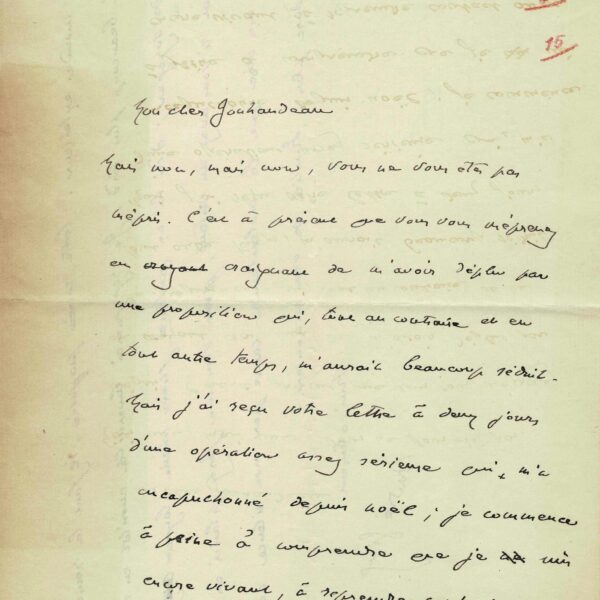 15
Mon cher Jouhandeau
Mais non, mais non, vous ne vous êtes pas
mépris. C'est à présent que vous vous méprenez
en croyant craignant de m'avoir déplu par
une proposition qui, tout au contraire et en
tout autre temps, m'aurait beaucoup séduit.
Mais j'ai reçu votre lettre à deux jours
d'une opération assez sérieuse qui m'a
encapuchonné depuis noël ; je commence
à peine à comprendre que je suis
encore vivant, à reprendre